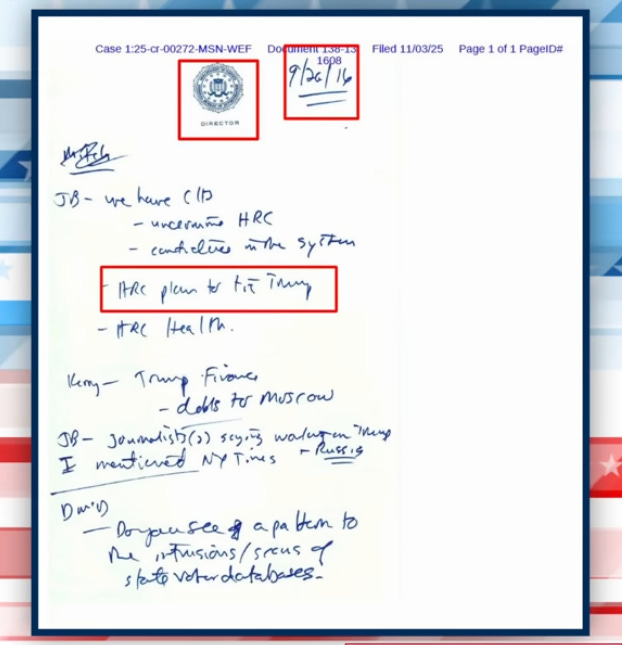 Case 1:25-cr-00272-MSN-WEF Document 138-13 Filed 11/03/25 Page 1 of 1 PageID#
1608
9/26/16
DIRECTOR
JB - we have
- undermine HRC
- candidates in the system
- HRC plan to tie Trump
- HRC Health.
Trump Finance
- debts to Moscow
JB - Journalists(2) saying working on Trump
I mentioned NY Times + Russia
- Do you see a pattern to
the intrusions/scans of
state voter databases.